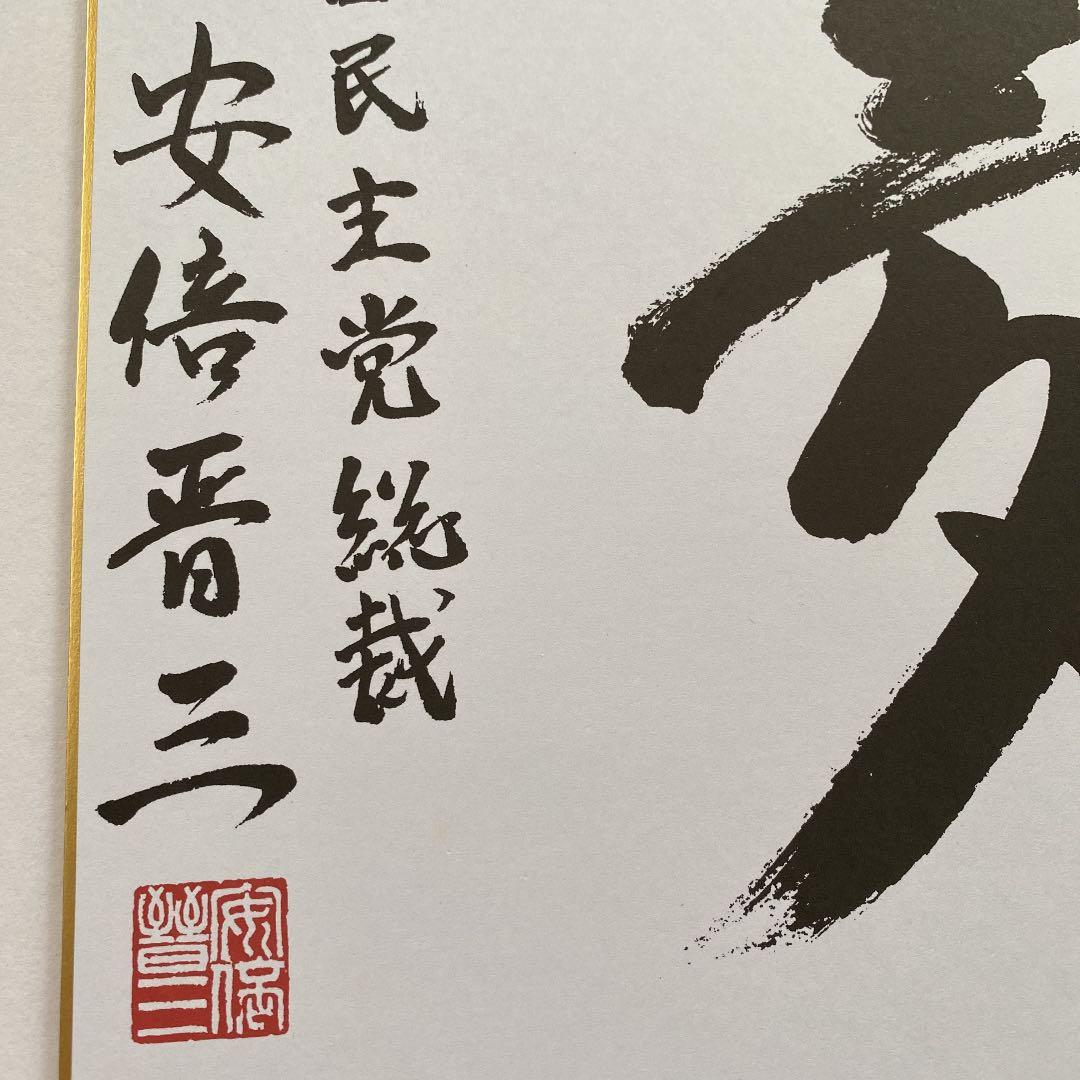 民主党総裁
安倍晋三
安倍晋三